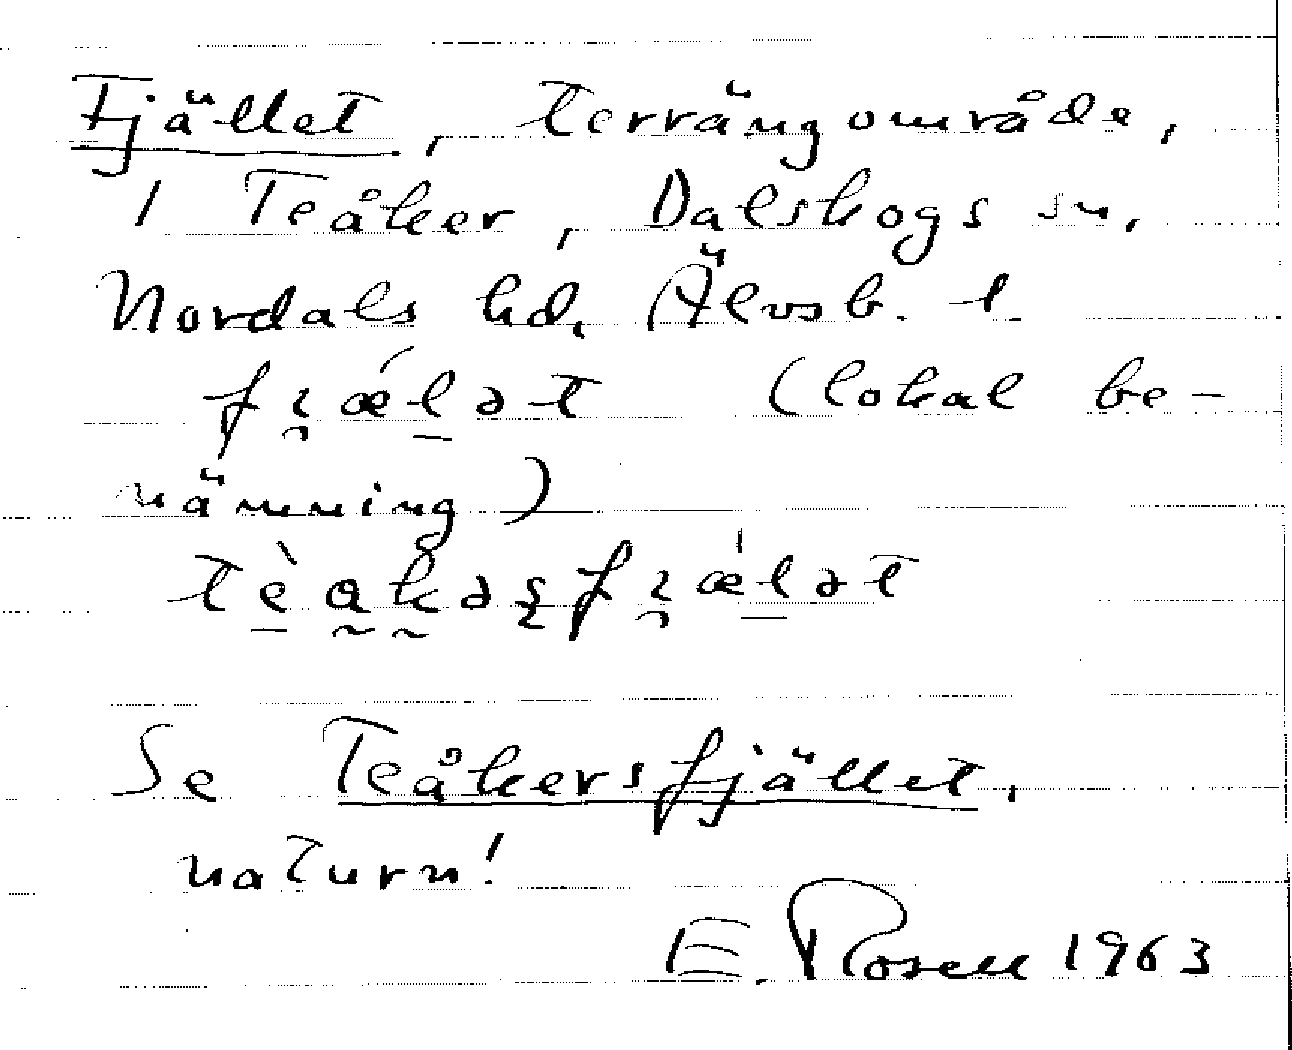 Fjället, terrängområde,
i Teåker, Dalskogs sn,
Nordals hd, Älvsb. l.
(lokal be-
nämning)
Se Teåkersfjället,
naturn!
E. Rosell 1963